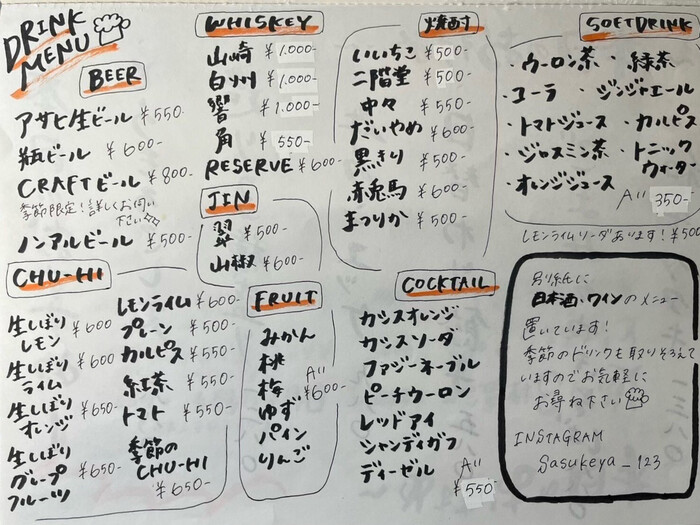 DRINK
MENU
BEER
アサヒ生ビール ¥550-
瓶ビール ¥600-
CRAFTビール ¥800-
季節限定!詳しくお伺い
下さい
ノンアルビール ¥500-
WHISKEY
山崎 ¥1.000-
白州 ¥1.000-
響 ¥1.000-
角 ¥550-
RESERVE ¥600-
JIN
翠 ¥500-
山椒 ¥600-
焼酎
いいちこ ¥500-
二階堂 ¥500-
中々 ¥550-
だいやめ ¥600-
黒きり ¥500-
赤兎馬 ¥600-
まつりか ¥500-
SOFT DRINK
・ウーロン茶 ・緑茶
・コーラ ・ジンジャエール
・トマトジュース ・カルピス
・ジャスミン茶 ・トニック
ウォーター
・オレンジジュース
All 350-
レモンライムソーダあります!¥500
CHU-HI
生しぼり
レモン ¥600
生しぼり
ライム ¥600
生しぼり
オレンジ ¥650-
生しぼり
グレープ
フルーツ ¥650-
レモンライム ¥600-
プレーン ¥500-
カルピス ¥550-
紅茶 ¥550-
トマト ¥550-
季節の
CHU-HI
¥650-
FRUIT
みかん
桃
梅
ゆず
パイン
りんご
All
¥600-
COCKTAIL
カシスオレンジ
カシスソーダ
ファジーネーブル
ピーチウーロン
レッドアイ
シャンディガフ
ディーゼル
All
¥550
別紙に
日本酒、ワインのメニュー
置いています!
季節のドリンクも取りそろえて
いますのでお気軽に
お尋ね下さい
INSTAGRAM
Sasukeya_123